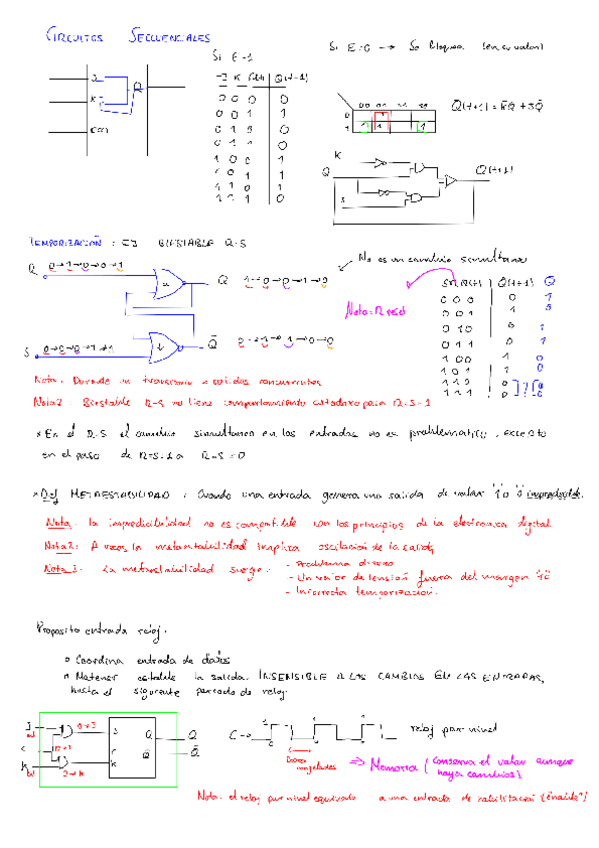 CIRCUITOS SECUENCIALES
Si E=0 → Se bloquea (en su valor)
Si E=1
J K Q(t) Q(t+1)
0 0 0 0
0 0 1 1
0 1 0 0
0 1 1 0
1 0 0 1
1 0 1 1
1 1 0 1
1 1 1 0
J
K
Q
00 01 11 10
0
1
Q(t+1) = K̄Q + JQ̄
K
Q
Q(t+1)
TEMPORIZACIÓN : EJ BIESTABLE R-S
No es un cambio simultaneo
R 0→1→0→0→1
Q 1→0→0→1→0
S R Q(t) Q(t+1) Q̄
Nota:
0 0 0 0 1
0 0 1 1 0
0 1 0 0 1
0 1 1 0 1
1 0 0 1 0
1 0 1 1 0
1 1 0 0
1 1 1 0
S
Q̄
Nota: Durante un transitorio salidas concurrentes
Nota 2: Biestable R-S no tiene comportamiento ortodoxo para R=S=1
* En el R-S el cambio simultaneo en las entradas no es problematico, excepto
en el paso de R=S=1 a R=S=0
* Def METAESTABILIDAD : Cuando una entrada genera una salida de valor "1 o 0" impredecible.
Nota: la impredicibilidad no es compatible con los principios de la electronica digital.
Nota 2: A veces la metaestabilidad implica oscilacion de la salida
Nota 3: La metaestabilidad surge: - Problema diseño
- Un valor de tensión fuera del margen
- Incorrecta temporizacion.
Proposito entrada reloj.
Coordina entrada de datos
Mantener estable la salida. INSENSIBLE A LOS CAMBIOS EN LAS ENTRADAS,
hasta el siguiente periodo de reloj
J
C
K
Q
Q̄
C
reloj por nivel
Datos
congelados
⇒ Memoria (conserva el valor aunque
haya cambios)
Nota: el reloj por nivel equivale a una entrada de habilitacion ("enable")